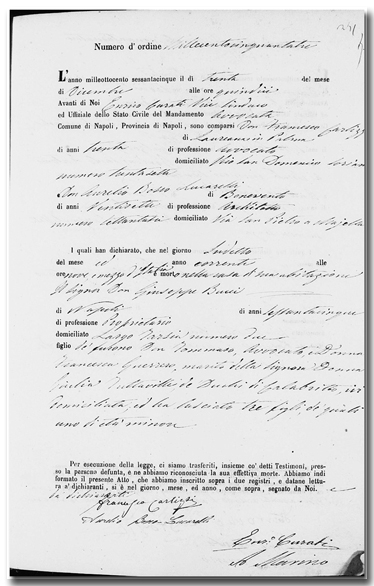 Numero d'ordine millecentocinquantatre
L'anno milleottocento sessantacinque il dì trenta del mese
di Dicembre alle ore quindici
Avanti di Noi Enrico Curati Vice Sindaco
ed Uffiziale dello Stato Civile del Mandamento Avvocata
Comune di Napoli, Provincia di Napoli, sono comparsi Don Francesco
di
di anni trenta di professione Avvocato
domiciliato Via San Domenico Soriano
numero
Don Aurelio Bosco Lucarelli
di Benevento
di anni Ventisette di professione Architetto
numero domiciliato Via San Pietro a Majella
I quali han dichiarato, che nel giorno suddetto
del mese ed anno corrente alle
ore nove e mezzo d'Italia è morto nella casa di sua abitazione
Il Signor Don Giuseppe Bucci
di Napoli di anni settantacinque
di professione Proprietario
domiciliato Largo numero due
figlio de' furono Don Tommaso, Avvocato e Donna
Francesca Guerrero, marito della Signora Donna
Giulia de' Duchi di Calabritto, ivi
domiciliata, ed ha lasciato tre figli de' quali
uno di età minore
Per esecuzione della legge, ci siamo trasferiti, insieme co' detti Testimoni, pres-
so la persona defunta, e ne abbiamo riconosciuta la sua effettiva morte. Abbiamo indi
formato il presente Atto, che abbiamo inscritto sopra i due registri, e datane lettu-
ra a' dichiaranti, si è nel giorno, mese, ed anno, come sopra, segnato da Noi. e
da dichiaranti
Francesco
Aurelio Bosco Lucarelli
Enrº Curati